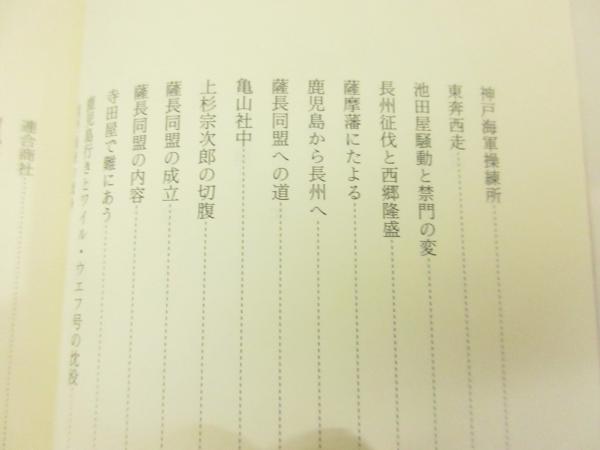 神戸海軍操練所
東奔西走
池田屋騒動と禁門の変
長州征伐と西郷隆盛
薩摩藩にたよる
鹿児島から長州へ
薩長同盟への道
亀山社中
上杉宗次郎の切腹
薩長同盟の成立
薩長同盟の内容
寺田屋で難にあう
鹿児島行きとワイル・ウェフ号の沈没
連合商社